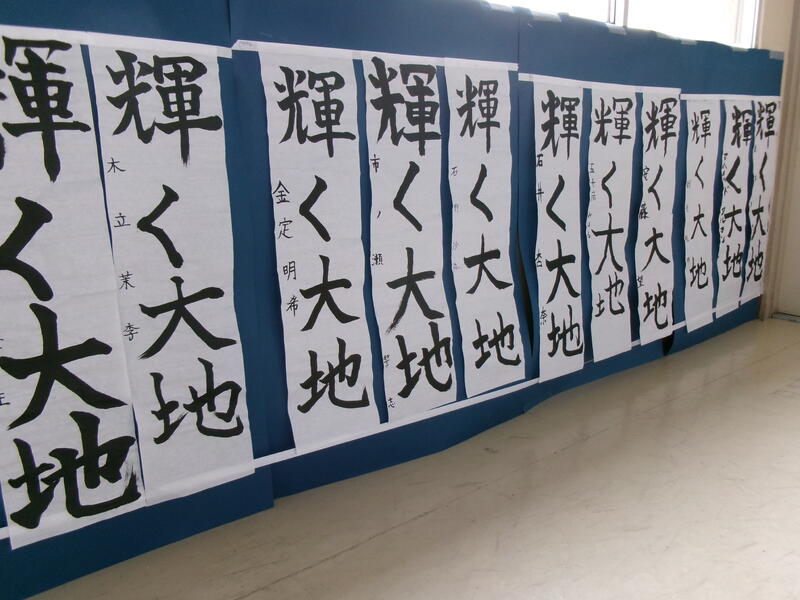 輝く大地
輝く大地
木立茉李
輝く大地
金定明希
輝く大地
市ノ瀬
志
輝く大地
石野
輝く大地
石井杏奈
輝く大地
五十嵐
輝く大地
輝く大地
輝く大地
輝く大地